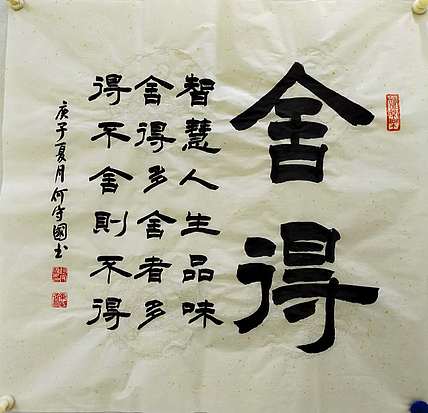 舍得
智慧人生品味
舍得多舍者多
得不舍則不得
庚子夏月何守國书